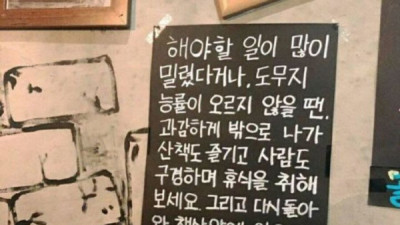 해야할 일이 많이
밀렸다거나, 도무지
능률이 오르지 않을 땐,
과감하게 밖으로 나가
산책도 즐기고 사람도
구경하며 휴식을 취해
보세요. 그리고 다시 돌아
와 책상앞에